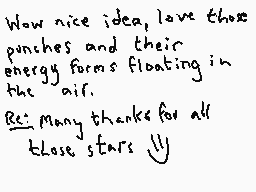 Wow nice idea, love those
punches and their
energy forms floating in
the air.
Re: Many thanks for all
those stars =)